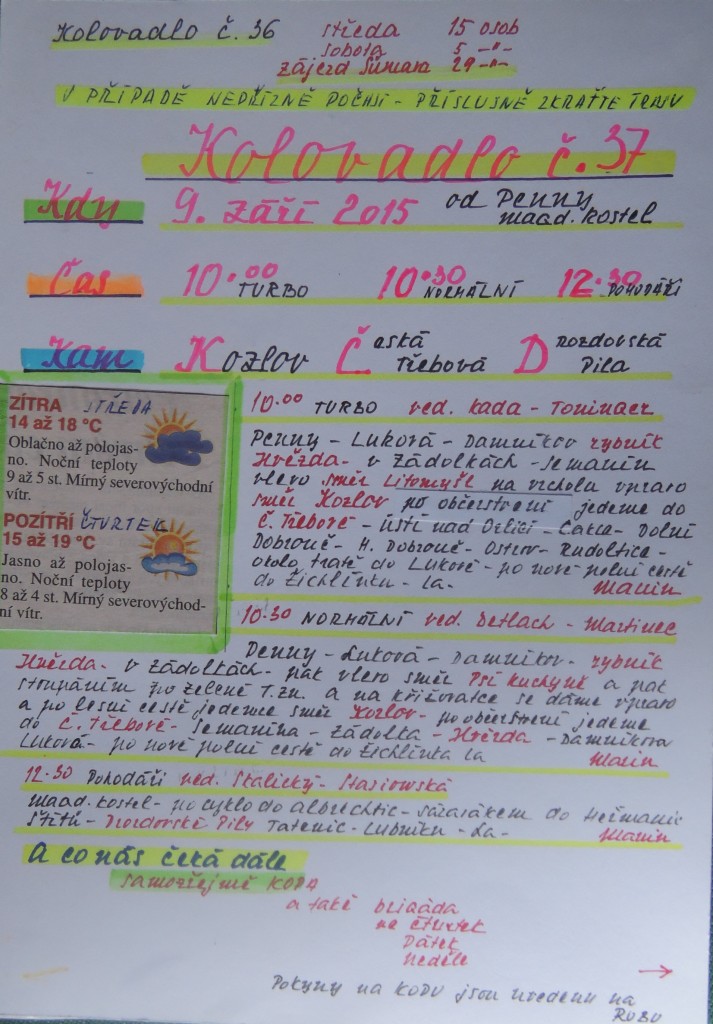 Kolovadlo č. 36 středa 15 osob
sobota 5 -"-
zájezd Šumava 29 -"-
V PŘÍPADĚ NEPŘÍZNĚ POČASÍ - PŘÍSLUŠNĚ ZKRAŤTE TRASU
Kolovadlo č. 37
Kdy 9. září 2015 od Penny
maad. kostel
Čas 10.00 TURBO 10.30 NORMÁLNÍ 12.30 POHODÁŘI
Kam Kozlov Česká Třebová Drozdovská Pila
ZÍTRA STŘEDA
14 až 18 °C
Oblačno až polojas-
no. Noční teploty
9 až 5 st. Mírný severovýchodní
vítr.
POZÍTŘÍ ČTVRTEK
15 až 19 °C
Jasno až polojas-
no. Noční teploty
8 až 4 st. Mírný severovýchod-
ní vítr.
10.00 TURBO ved. Kada -
Penny - Luková - Damníkov rybník
Hvězda - v Zádolkách - Semanín
vlevo směr Litomyšl na vrcholu vpravo
směr Kozlov po občerstvení jedeme do
Č. Třebové - Ústí nad Orlicí - - Dolní
Dobrouč - H. Dobrouč - Ostrov - Rudoltice -
okolo tratě do Lukové - po nové polní cestě
do Žichlínku - La.
10.30 NORMÁLNÍ ved. Detlach - Martinec
Penny - Luková - Damníkov - rybník
Hvězda - v Zádolkách - pak vlevo směr Psí kuchyně a pak
stoupáním po zelené T.zn. a na křižovatce se dáme vpravo
a po lesní cestě jedeme směr Kozlov - po občerstvení jedeme
do Č. Třebové - Semanína - Zádolka - Hvězda - Damníkova
Luková - po nové polní cestě do Žichlínka La
12.30 Pohodáři ved. Skalický - Stasiowská
maad. kostel - po cyklo do Albrechtic - Sázavákem do Heřmanic
Štítů - Drozdovské Pily Tatenic - Lubníku - La -
A co nás čeká dále
samozřejmě KOPA
a také brigáda
na čtvrtek
Pátek
neděle
→
Pokyny na KOPU jsou uvedeny na
RUBU